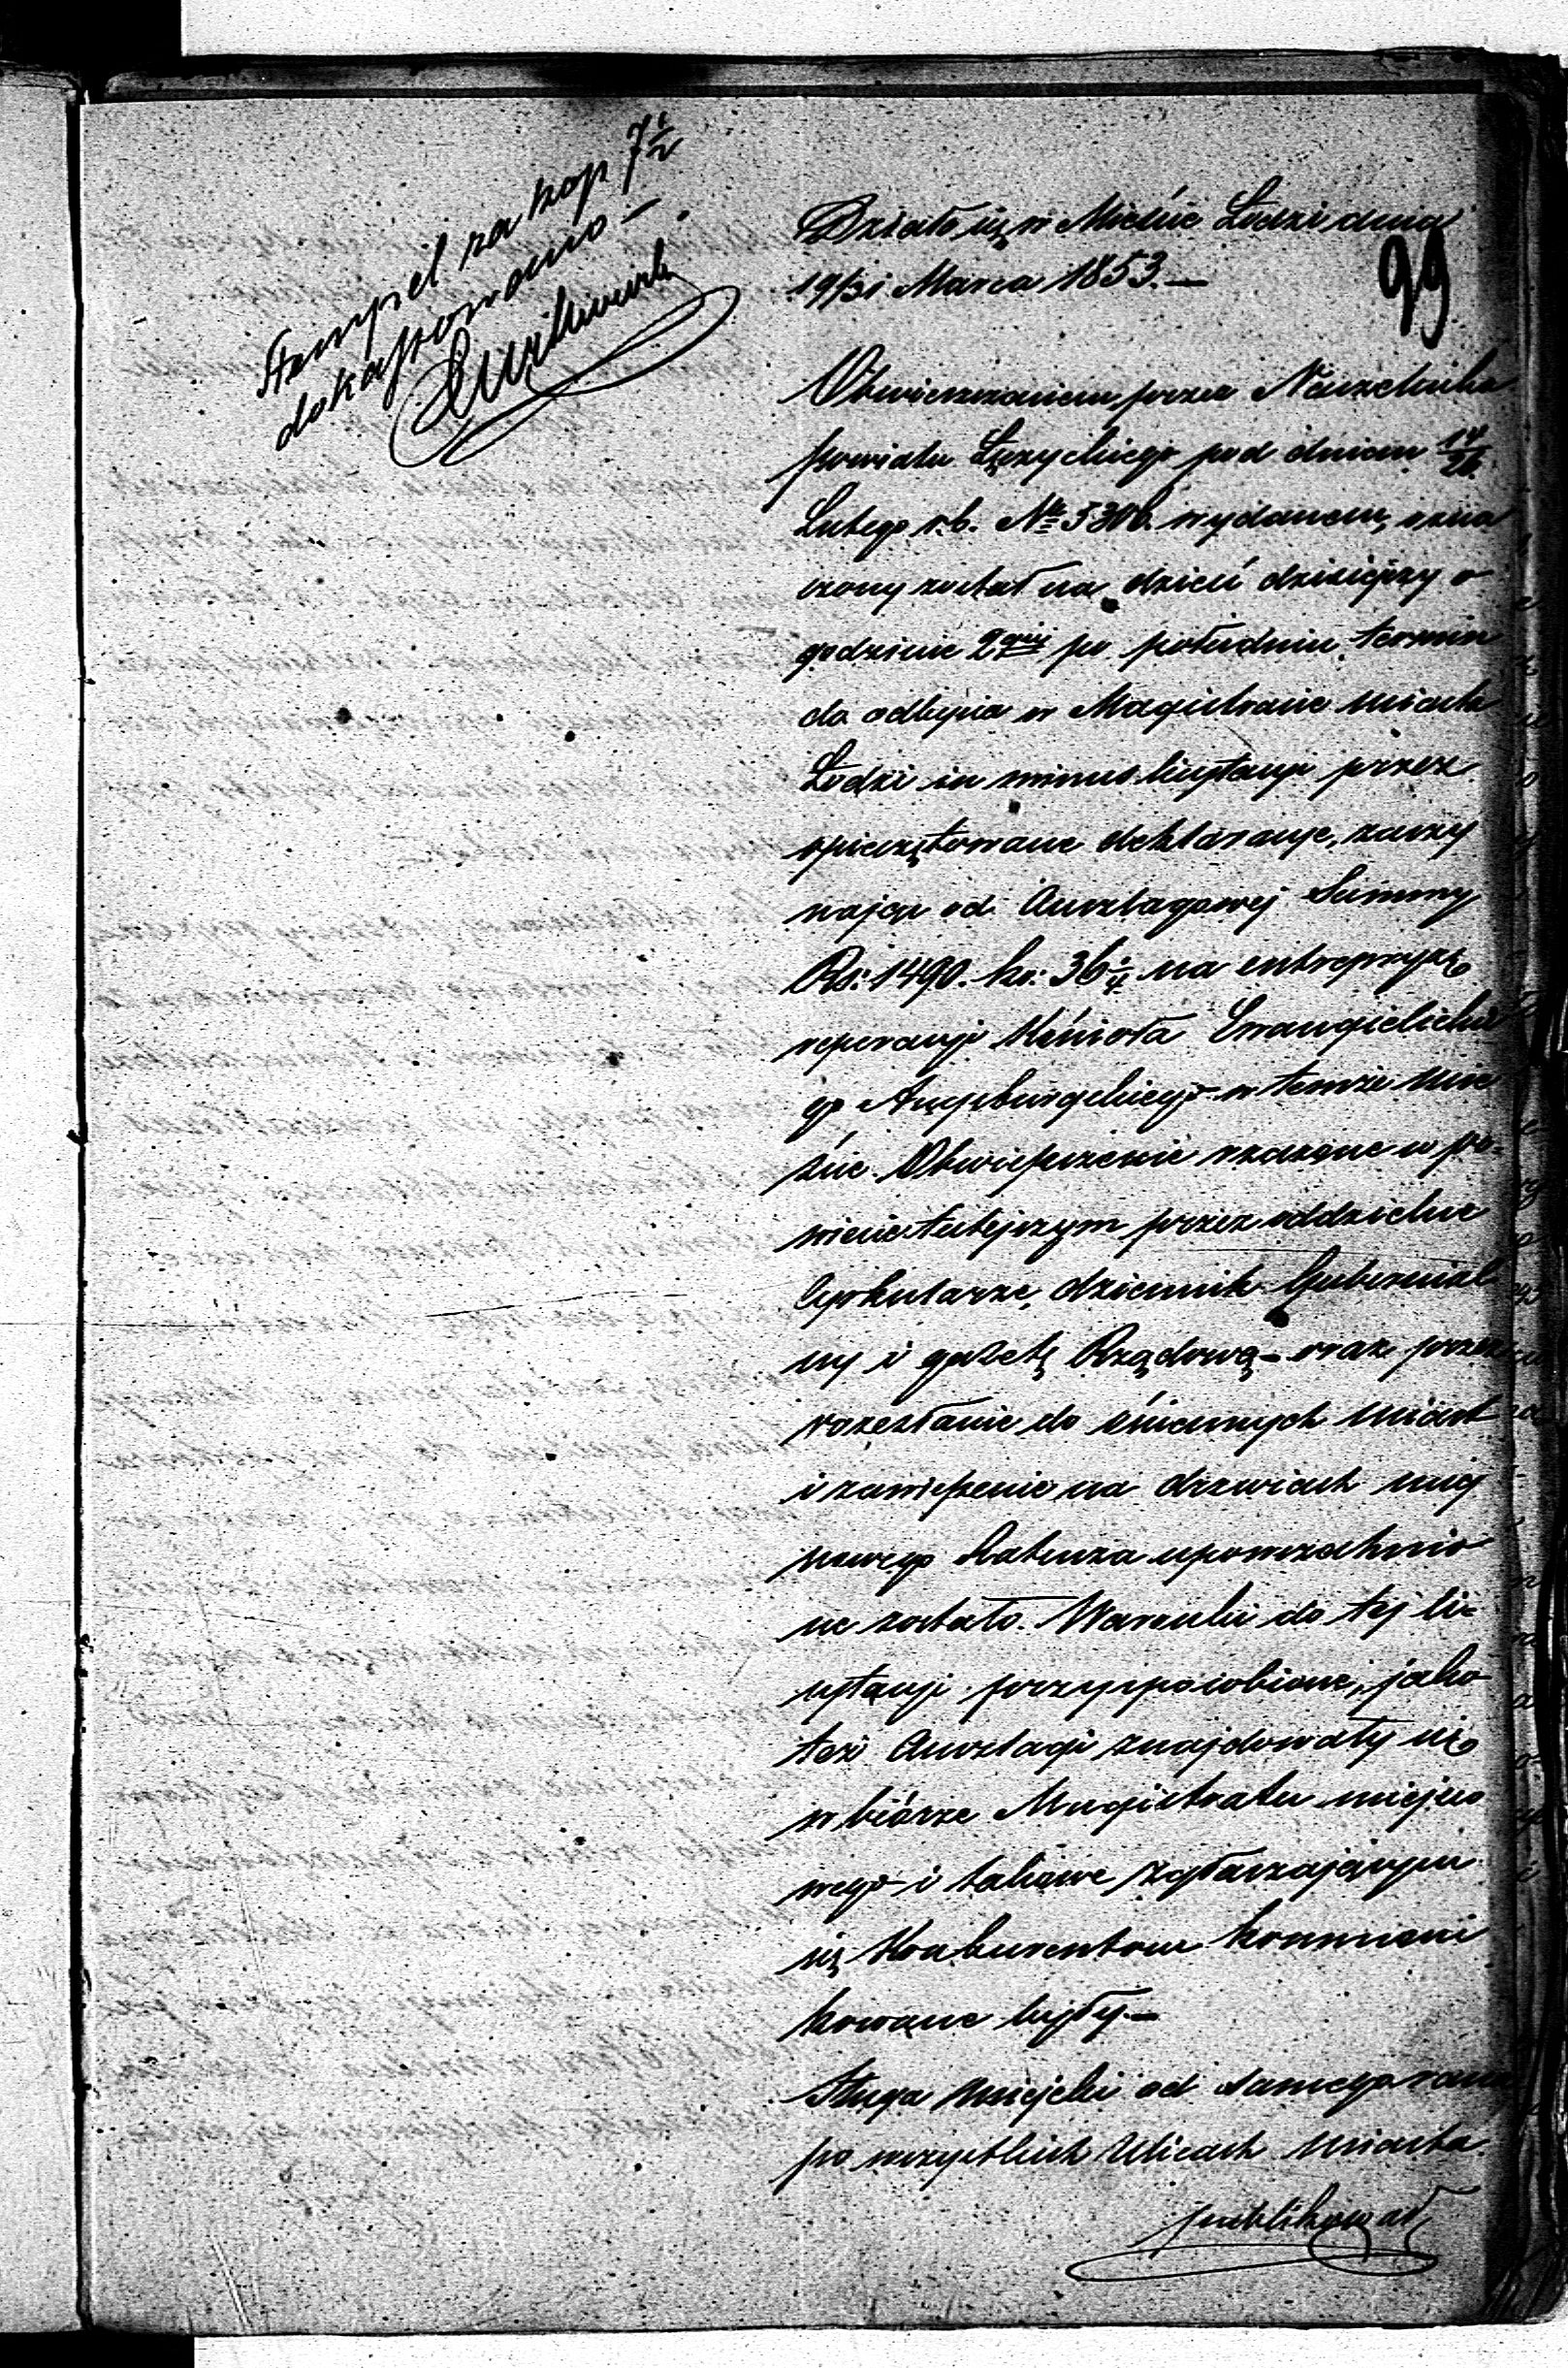 Stempel za kop 7½
dokassowano —
99
Działo się w Mieście Łodzi dnia
19/31 Marca 1853. —
Obwieszczeniem przez Naczelnika
powiatu Łęczyckiego pod dniem 14/26
Lutego r. b. № 5306. wydanem, ozna
czony został na dzień dzisiejszy o
godzinie 2giej po południu termin
do odbycia w Magistracie miasta
Łodzi in minus licytacyi przez
opieczętowane deklaracye, zaczy
nając od Anszlagowej Summy
Rs: 1490. ko: 36¼ na entrepryzę
reperacyi Kościoła Ewangielickie
go Augsburgskiego w temże mie
ście. Obwieszczenie rzeczone w po=
wiecie tutejszym przez oddzielne
Cyrkularze, dziennik Gubernial
ny i gazetę Rządową — oraz przez
rozesłanie do ościennych miast
i zawieszenie na drzwiach miej
scowego Ratusza upowszechnio
ne zostało. Warunki do tej li=
cytacyi przysposobione, jako
też Anszlagi znajdowały się
w biórze Magistratu miejsco
wego i takowe zgłaszającym
się Konkurentom kommuni
kowane były. —
Sługa Miejski od samego rana
po wszystkich Ulicach Miasta
publikował